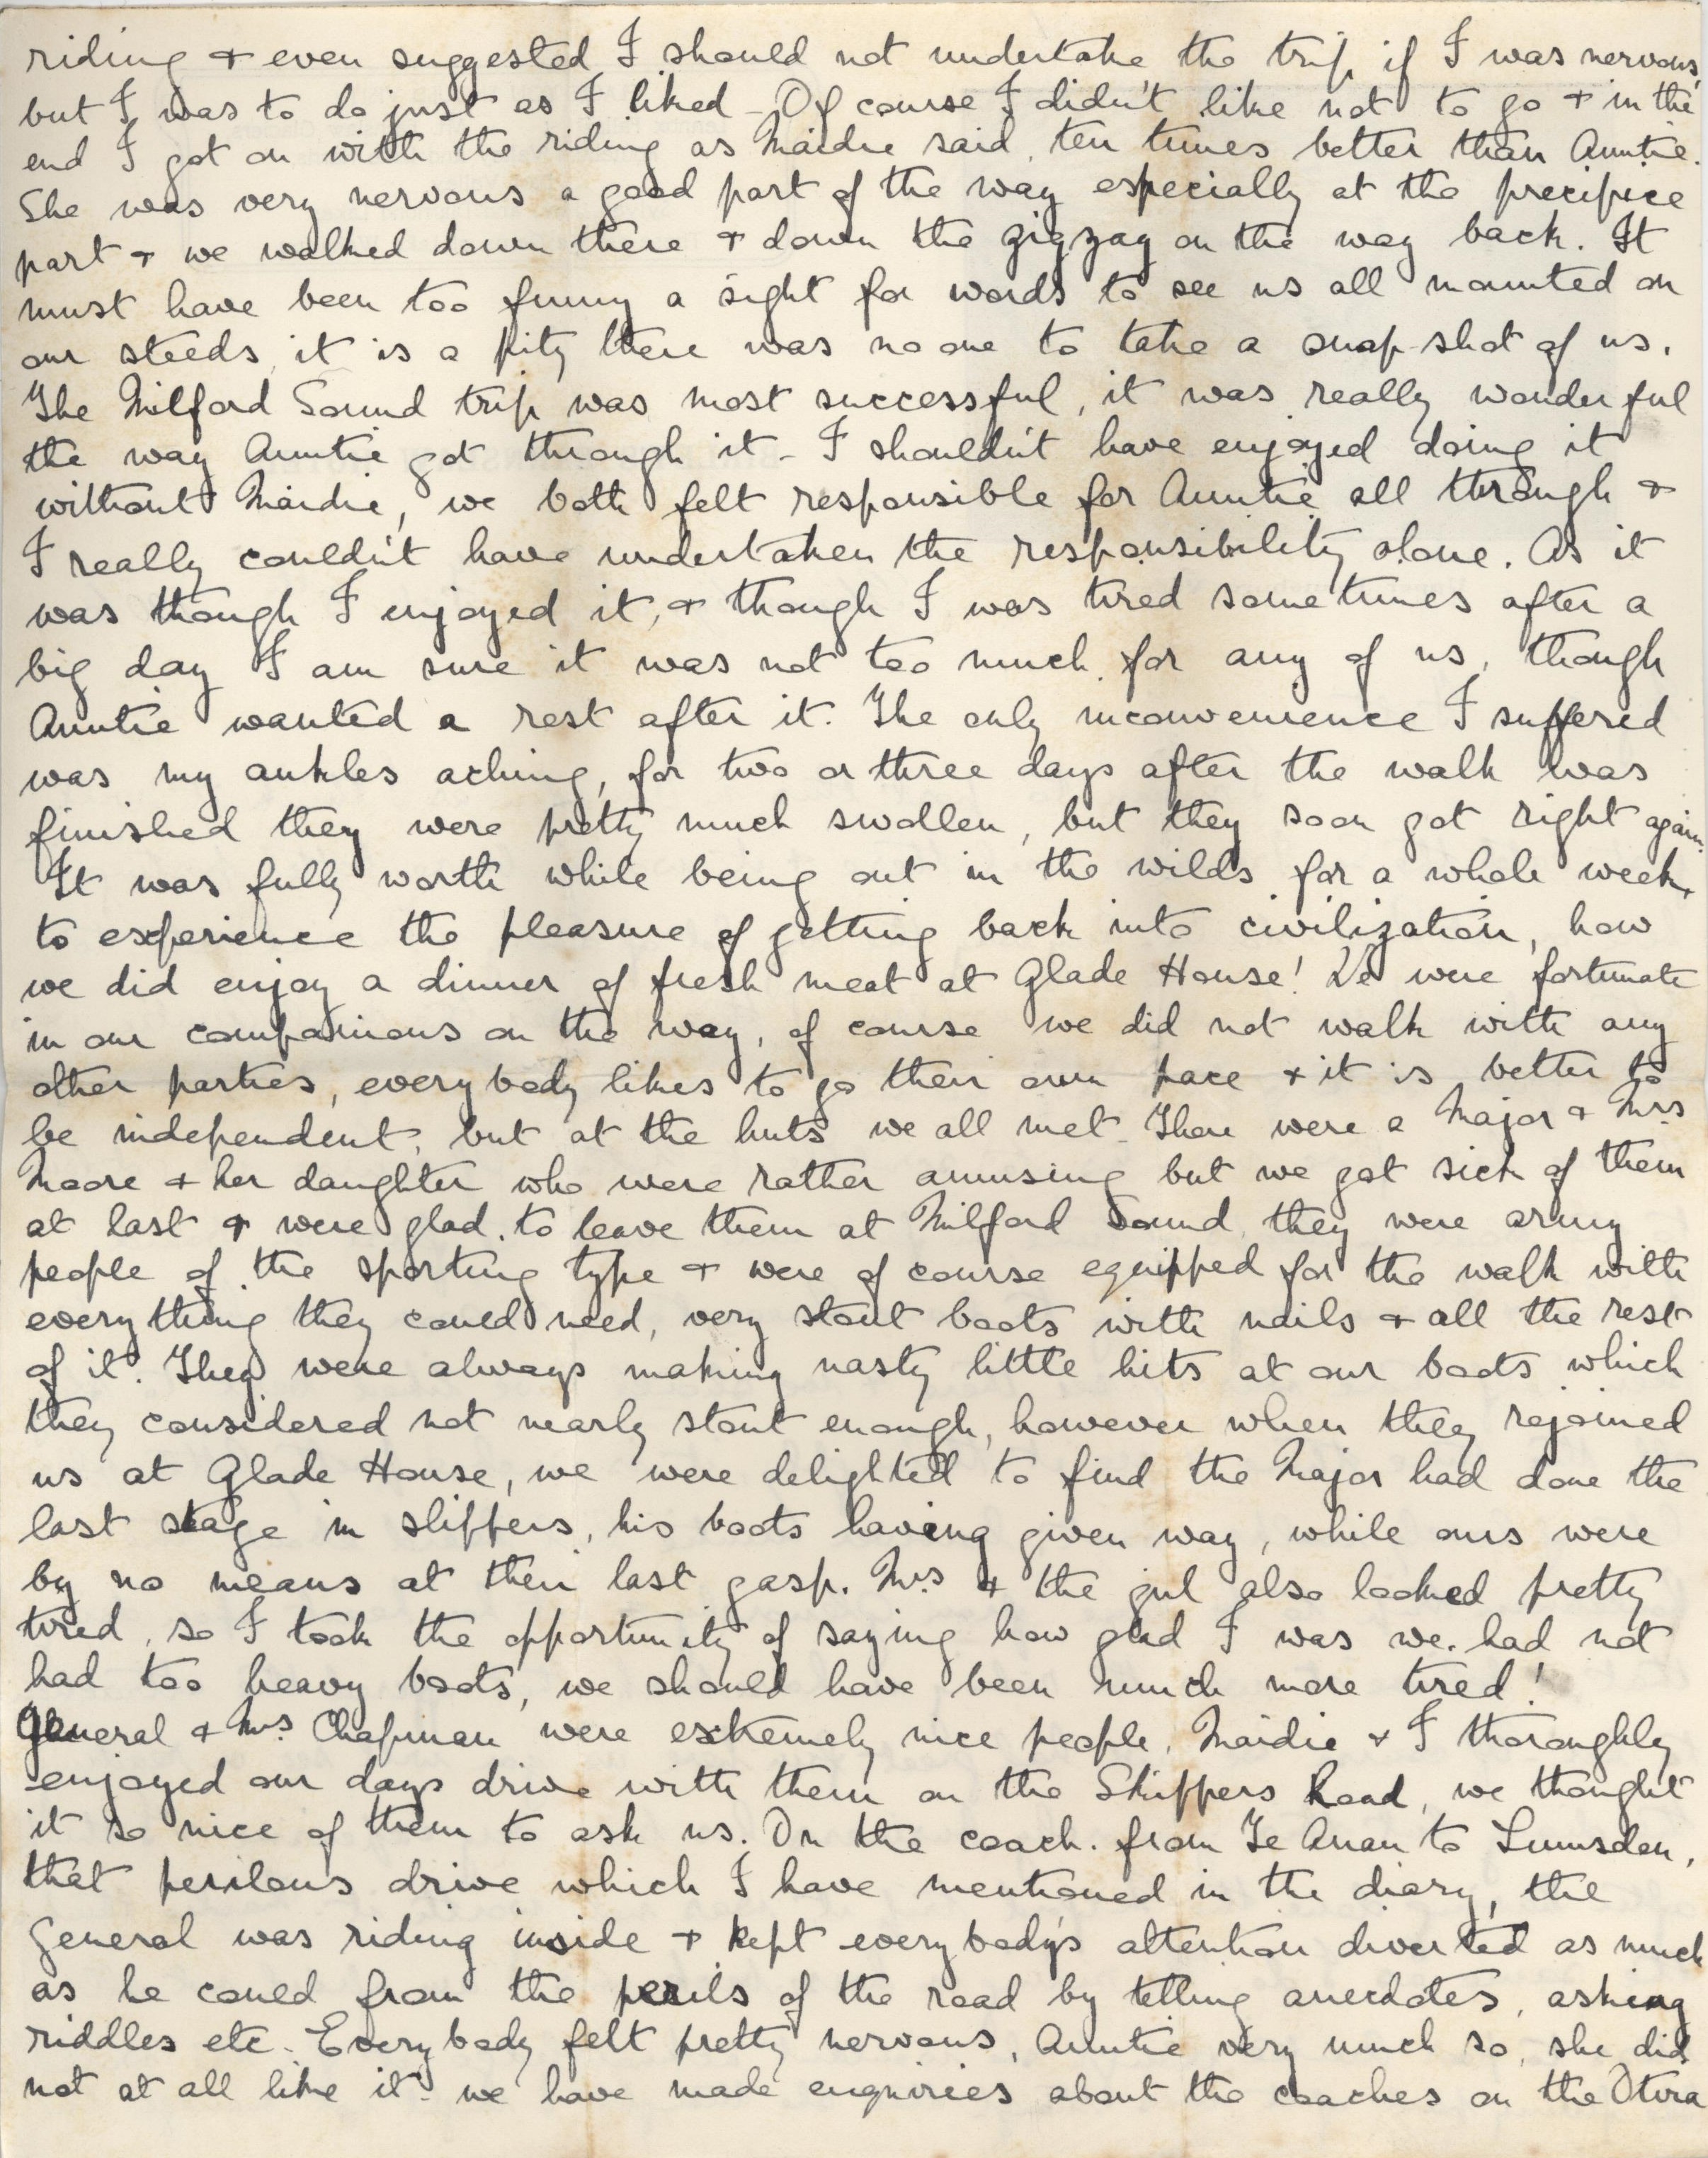 riding + even suggested I should not undertake the trip if I was nervous,
but I was to do just as I liked - Of course I didn't like not to go + in the
end I got on with the riding as Maidie said, ten times better than Auntie.
She was very nervous a good part of the way especially at the precipice
part + we walked down there + down the zigzag on the way back. It
must have been too funny a sight for words to see us all mounted on
our steeds, it is a pity there was no one to take a snap-shot of us.
The Milford Sound trip was most successful, it was really wonderful
the way Auntie got through it - I shouldn't have enjoyed doing it
without Maidie, we both felt responsible for Auntie all through +
I really couldn't have undertaken the responsibility alone. As it
was though I enjoyed it, + though I was tired sometimes after a
big day I am sure it was not too much for any of us, though
Auntie wanted a rest after it. The only inconvenience I suffered
was my ankles aching, for two or three days after the walk was
finished they were pretty much swollen, but they soon got right again.
It was fully worth while being out in the wilds for a whole week,
to experience the pleasure of getting back into civilization, how
we did enjoy a dinner of fresh meat at Glade House! We were fortunate
in our companions on the way, of course we did not walk with any
other parties, everybody likes to go their own pace + it is better to
be independent, but at the huts we all met - There were a Major + Mrs
Moore + her daughter who were rather amusing but we got sick of them
at last + were glad to leave them at Milford Sound, they were army
people of the sporting type + were of course equipped for the walk with
everything they could need, very stout boots with nails + all the rest
of it. They were always making nasty little hits at our boots which
they considered not nearly stout enough, however when they rejoined
us at Glade House, we were delighted to find the Major had done the
last stage in slippers, his boots having given way, while ours were
by no means at their last gasp. Mrs + the girl also looked pretty
tired, so I took the opportunity of saying how glad I was we had not
had too heavy boots, we should have been much more tired!
General + Mrs Chapman were extremely nice people, Maidie + I thoroughly
enjoyed our days drive with them on the Skippers Road, we thought
it so nice of them to ask us. On the coach from Te Anau to Lumsden,
that perilous drive which I have mentioned in the diary, the
General was riding inside + kept everybody's attention diverted as much
as he could from the perils of the road by telling anecdotes, asking
riddles etc - Everybody felt pretty nervous, Auntie very much so, she did
not at all like it - we have made enquiries about the coaches on the Otira